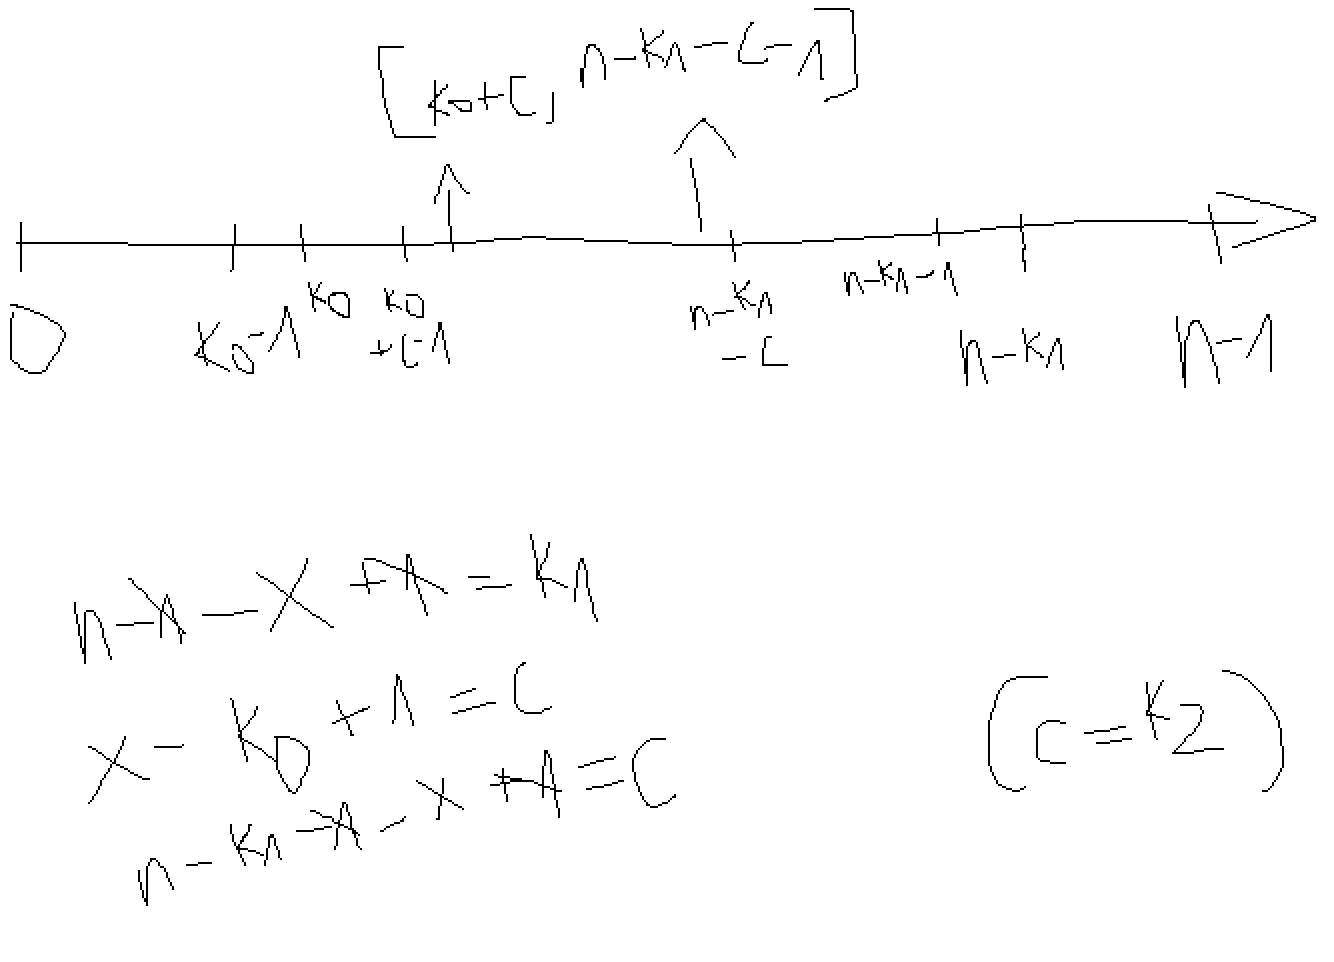 [k0+C, n-k1-C-1]
0 k0-1 k0 k0+C-1 n-k1-C n-k1-1 n-k1 n-1
n-1-x+1=k1
x-k0+1=C
n-k1-1-x+1=C
(C=k2)